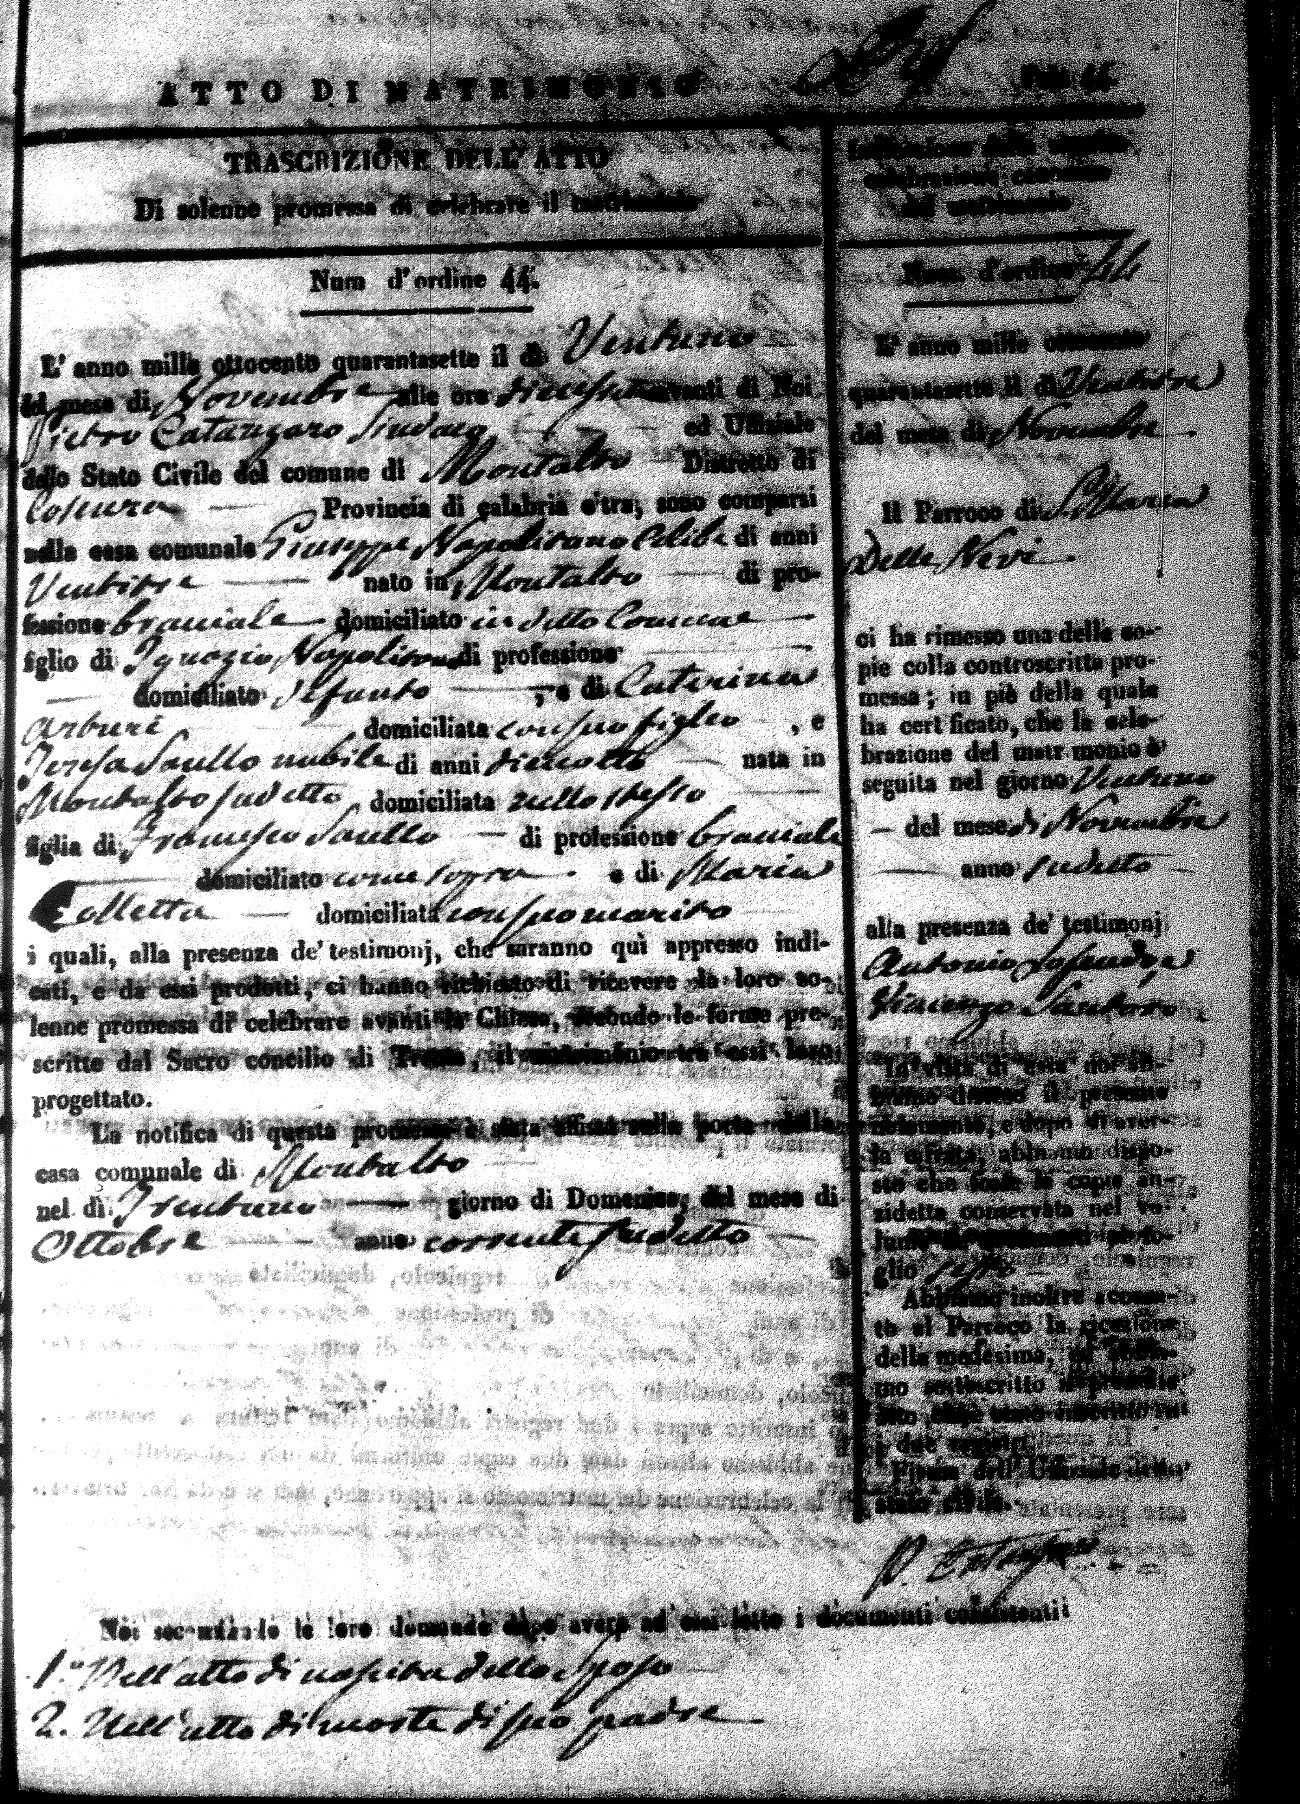 ATTO DI MATRIMONIO
TRASCRIZIONE DELL' ATTO
Di solenne promessa di celebrare il matrimonio
Num d'ordine 44.
L' anno mille ottocento quarantasette il dì Ventuno
del mese di Novembre alle ore avanti di Noi
Pietro Catanzaro Sindaco ed Uffiziale
dello Stato Civile del comune di Montalto Distretto di
Cosenza Provincia di calabria citra, sono comparsi
nella casa comunale Giuseppe Napolitano Celibe di anni
Ventitre nato in Montalto di pro-
fessione bracciale domiciliato in detto Comune
figlio di Ignazio Napolitano di professione
domiciliato defunto , e di Caterina
Arturi domiciliata con suo figlio , e
Teresa Saullo nubile di anni dieciotto nata in
Montalto sudetto domiciliata nello stesso
figlia di Francesco Saullo di professione bracciale
domiciliato come sopra e di Maria
Colletta domiciliata con suo marito
i quali, alla presenza de' testimonj, che saranno quì appresso indi-
cati, e da essi prodotti, ci hanno richiesto di ricevere la loro so-
lenne promessa di celebrare avanti la Chiesa, secondo le forme pre-
scritte dal Sacro concilio di Trento, il matrimonio tra essi loro
progettato.
La notifica di questa promessa è stata affissa sulla porta della
casa comunale di Montalto
nel dì Trentuno giorno di Domenica, del mese di
Ottobre anno corrente sudetto
celebrazione canonica
del matrimonio
Num. d'ordine 44
L' anno mille ottocento
quarantasette il dì Ventitre
del mese di Novembre
Il Parroco di S. Maria
Delle Nevi
ci ha rimesso una delle co-
pie colla controscritta pro-
messa; in piè della quale
ha certificato, che la cele-
brazione del matrimonio è
seguita nel giorno Ventuno
del mese di Novembre
anno sudetto
alla presenza de' testimonj
Antonio
Vincenzo Santoro
In vista di essa noi ab-
biamo disteso il presente
notamento, e dopo di aver-
la cifrata, abbiamo dispo-
sto che fosse la copia an-
zidetta conservata nel vo-
lume al fo-
glio
Abbiamo inoltre accusa-
to al Parroco la ricezione
della medesima, ed abbia-
mo sottoscritto il presente
atto, ch'è stato inserito su
i due registri.
Firma dell' Uffiziale dello
stato civile.
P. Catanzaro
Noi secondando le loro domande dopo avere ad essi letto i documenti consistenti:
1.° Nell'atto di nascita dello sposo
2. Nell'atto di morte di suo padre